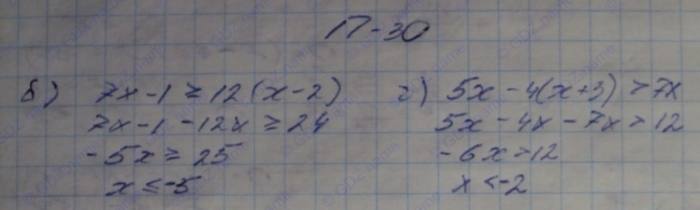 П-30
б) 7x-1 ≥ 12(x-2)
7x-1-12x ≥ 24
-5x ≥ 25
x ≤ -5
г) 5x-4(x+3) > 7x
5x-4x-7x > 12
-6x > 12
x < -2